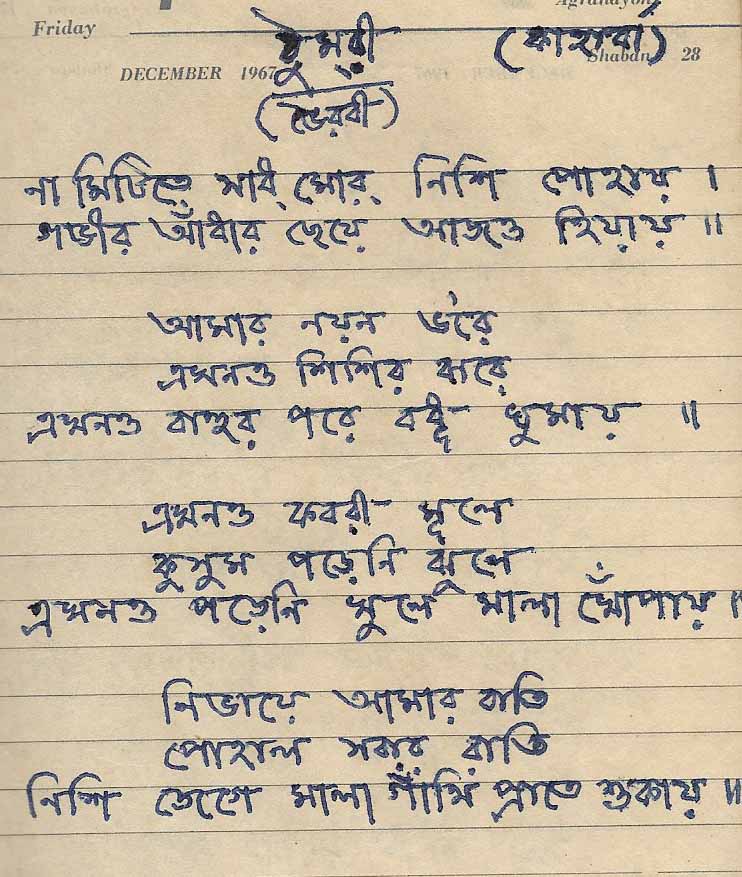 Agrahayon
Friday ঠুমরী (কাহারবা)
DECEMBER 1967 Shaban 28
(ভৈরবী)
না মিটিতে সাধ মোর নিশি পোহায় ।
গভীর আঁধার ছেয়ে আজও হিয়ায় ॥
আমার নয়ন ভ'রে
এখনও শিশির ঝরে
এখনও বাহুর পরে বধূ ঘুমায় ॥
এখনও কবরী মূলে
কুসুম পড়েনি ঝুলে
এখনও পড়েনি খুলে মালা খোঁপায় ॥
নিভায়ে আমার বাতি
পোহাল সবার রাতি
নিশি জেগে মালা গাঁথি প্রাতে শুকায় ॥